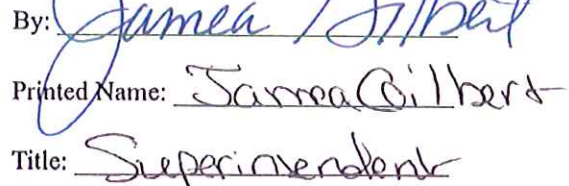 By: Jamea Gilbert
Printed Name: Jamea Gilbert
Title: Superintendent